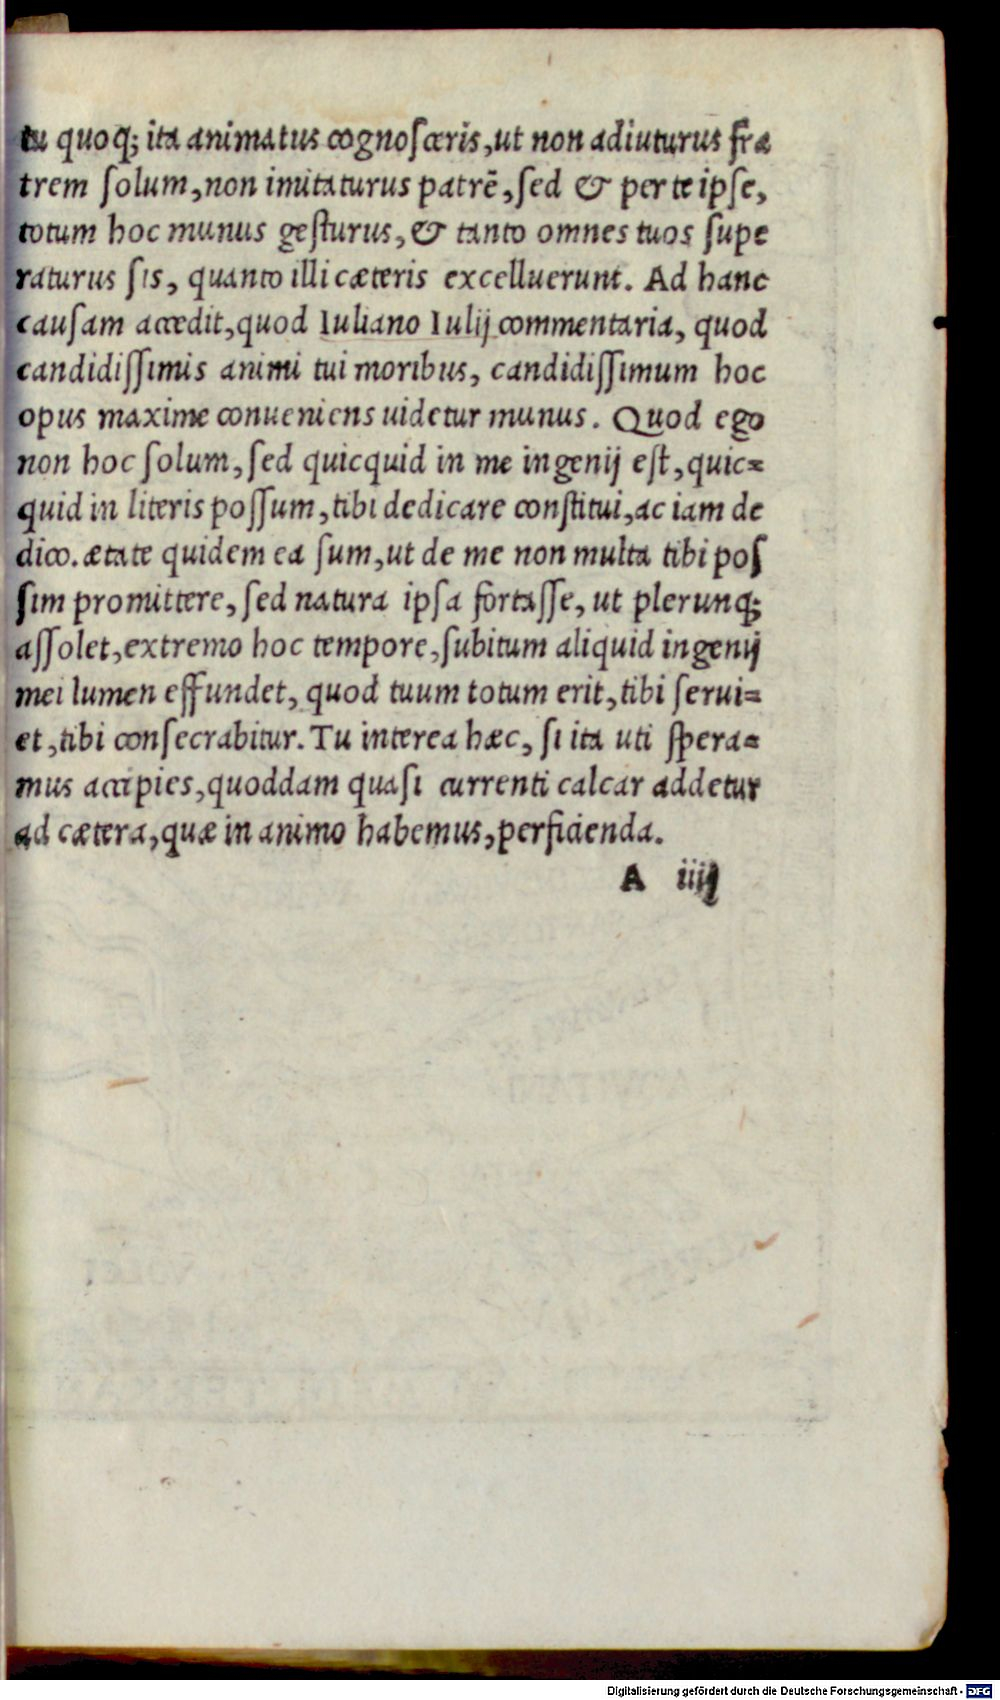 tu quoq; ita animatus cognosceris, ut non adiuturus fra
trem solum, non imitaturus patrē, sed & per te ipse,
totum hoc munus gesturus, & tanto omnes tuos supe
raturus sis, quanto illi cæteris excelluerunt. Ad hanc
causam accedit, quod Iuliano Iulij commentaria, quod
candidissimis animi tui moribus, candidissimum hoc
opus maxime conueniens uidetur munus. Quod ego
non hoc solum, sed quicquid in me ingenij est, quic=
quid in literis possum, tibi dedicare constitui, ac iam de
dico. ætate quidem ea sum, ut de me non multa tibi pos
sim promittere, sed natura ipsa fortasse, ut plerunq;
assolet, extremo hoc tempore, subitum aliquid ingenij
mei lumen effundet, quod tuum totum erit, tibi serui=
et, tibi consecrabitur. Tu interea hæc, si ita uti spera=
mus accipies, quoddam quasi currenti calcar addetur
ad cætera, quæ in animo habemus, perficienda.
A iiij
Digitalisierung gefördert durch die Deutsche Forschungsgemeinschaft - DFG